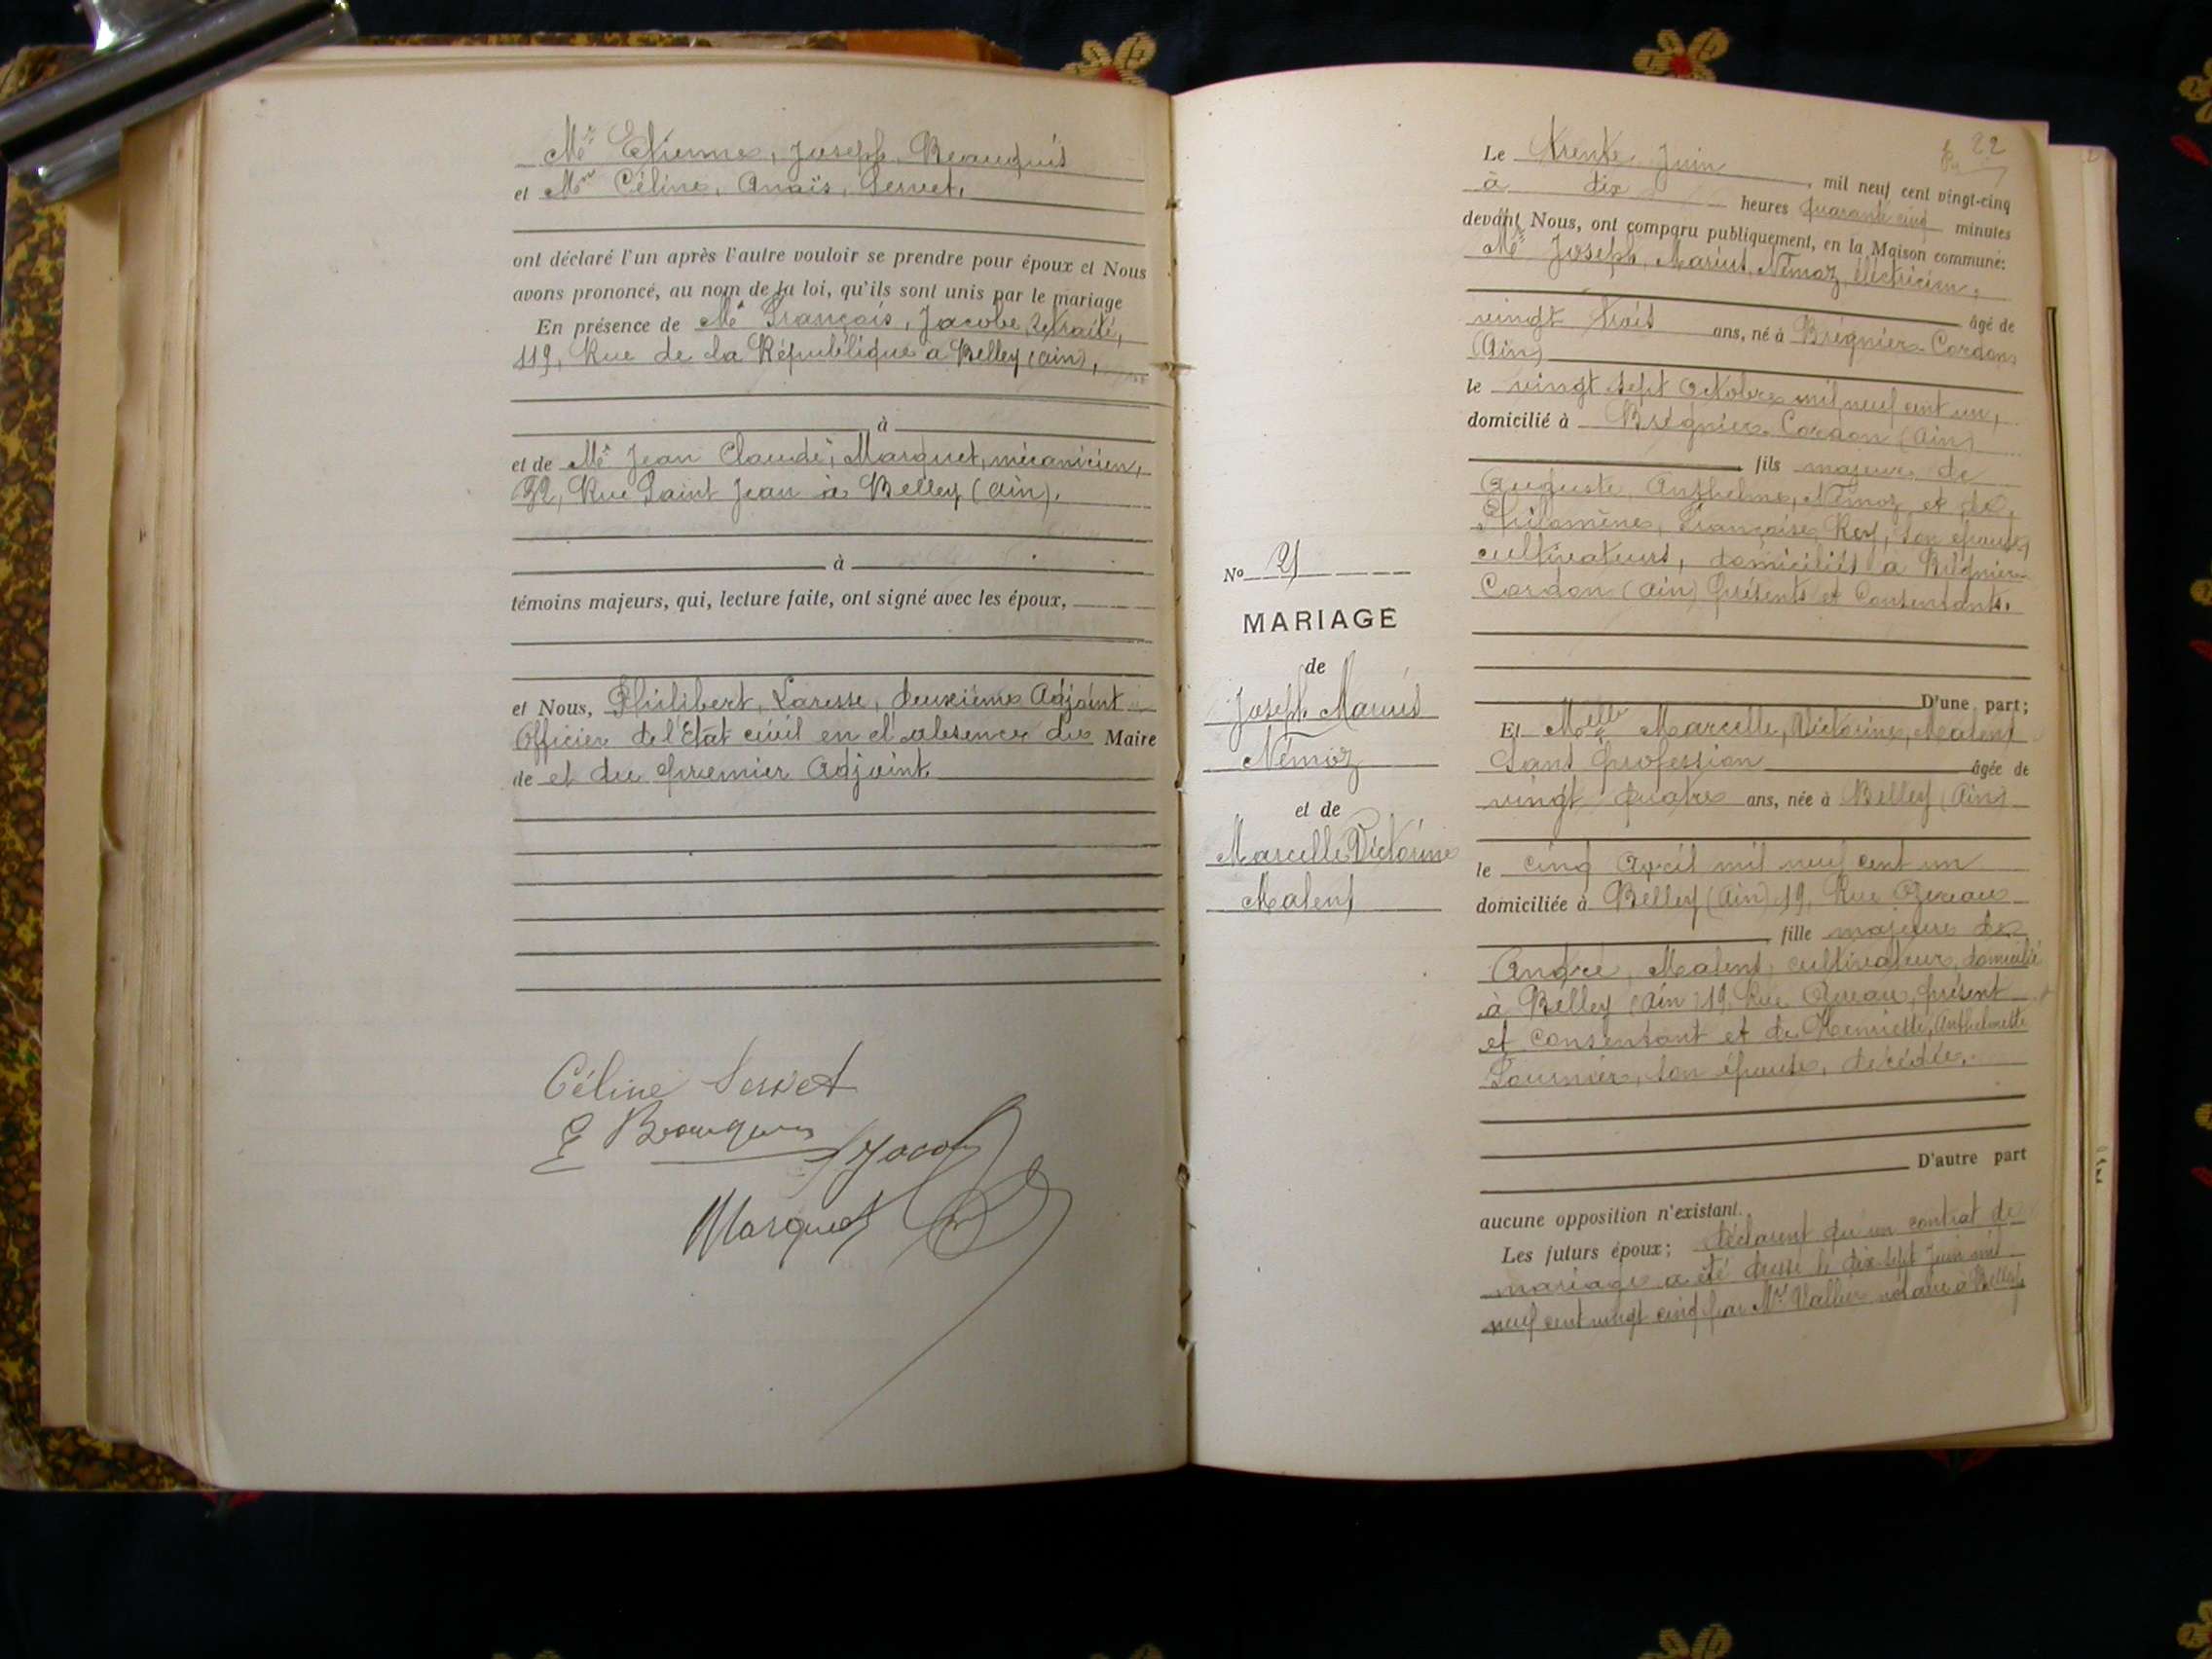 Mr Etienne, Joseph, Beauquis
et Me Céline, Anaïs, Servet,
ont déclaré l'un après l'autre vouloir se prendre pour époux et Nous
avons prononcé, au nom de la loi, qu'ils sont unis par le mariage
En présence de Mr François, Jacobe, retraité,
119, Rue de la République à Belley (Ain),
à
et de Mr Jean Claude, Marquet, mécanicien,
32, Rue Saint Jean à Belley (Ain).
à
témoins majeurs, qui, lecture faite, ont signé avec les époux,
et Nous, Philibert, Laresse, deuxième Adjoint
Officier de l'Etat civil en l'absence du Maire
de et du premier Adjoint.
Céline Servet
E Beauquis
Jacob
Marquet
22
Le trente Juin, mil neuf cent vingt-cinq
à dix heures quarante cinq minutes
devant Nous, ont comparu publiquement, en la Maison commune:
Mr Joseph, Marius, Némoz, électricien,
âgé de
vingt trois ans, né à Brégnier-Cordon
(Ain)
le vingt sept Octobre mil neuf cent un,
domicilié à Brégnier-Cordon (Ain)
fils majeur de
Auguste, Anthelme, Némoz, et de
Philomène, Françoise, Rey, son épouse,
cultivateurs, domiciliés à Brégnier-
Cordon (Ain) présents et Consentants.
D'une part;
No 21
MARIAGE
de
Joseph Marius
Némoz
et de
Marcelle Victorine
Malent
Et Melle Marcelle, Victorine, Malent
Sans profession âgée de
vingt quatre ans, née à Belley (Ain)
le cinq Avril mil neuf cent un
domiciliée à Belley (Ain) 19, Rue
fille majeure de
André, Malent, cultivateur, domicilié
à Belley (Ain) 19, Rue présent
et consentant et de Henriette, Anthelmette
Fournier, son épouse, décédée.
D'autre part
aucune opposition n'existant.
Les futurs époux; déclarent qu'un contrat de
mariage a été dressé le dix sept Juin mil
neuf cent vingt cinq par Me Vallier notaire à Belley